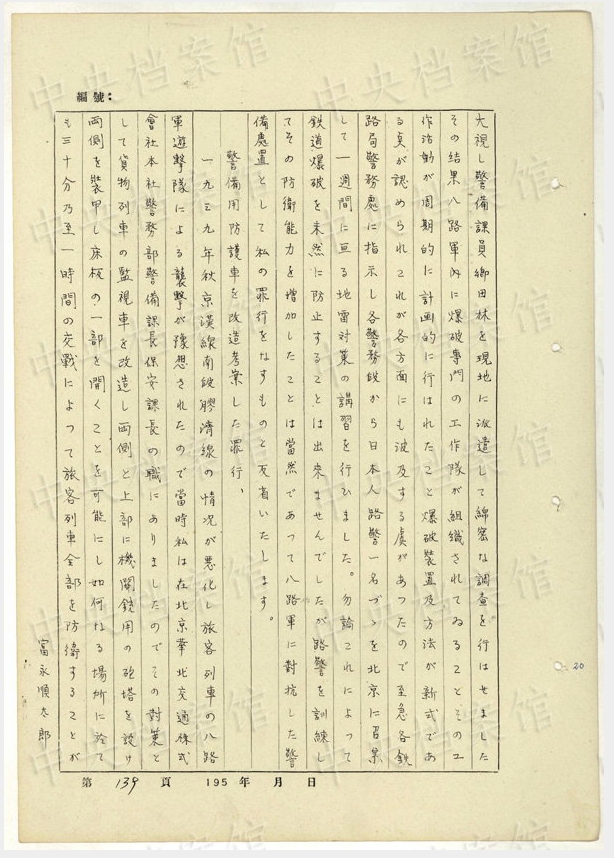 編號:
大視し警備課員郷田林を現地に派遣して綿密な調査を行はせました
その結果八路軍內に爆破專門の工作隊が組織されてゐることその工
作活動が周期的に計画的に行はれたこと爆破装置及方法が新式であ
る点が認められこれが各方面にも波及する虞があつたので至急各鉄
路局警務處に指示し各警務段から日本人路警一名づゝを北京に召集
して一週間に亘る地雷対策の講習を行ひました。勿論これによつて
鉄道爆破を未然に防止することは出来ませんでしたが路警を訓練し
てその防衛能力を増加したことは當然であつて八路軍に対抗した警
備處置として私の罪行をなすものと反省いたします。
警備用防護車を改造考案した罪行、
一九三九年秋京漢線南段膠濟線の情況が悪化し旅客列車の八路
軍遊撃隊による襲撃が豫想されたので當時私は在北京華北交通株式
會社本社警務部警備課長保安課長の職にありましたのでその対策と
して貨物列車の監視車を改造し両側と上部に機関銃用の砲塔を設け
両側を装甲し床板の一部を開くことを可能にし如何なる場所に於て
も三十分乃至一時間の交戰によつて旅客列車全部を防衛することが
富永順太郎
第 139 頁 195 年 月 日
20
中央档案馆